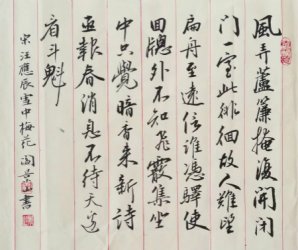 風弄蘆簾掩復開閉
門一室此徘徊故人難望
扁舟至遠信誰憑驛使
回牕外不知飛霰集坐
中只覺暗香來新詩
亟報春消息不待天邊
看斗魁
宋汪應辰雪中梅花 書